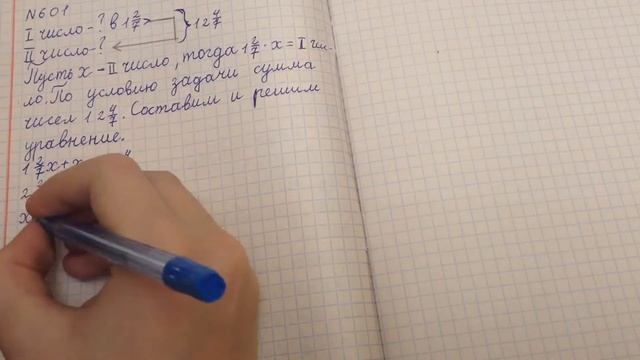 N601
I число - ? в 1 2/7 > } 12 4/7
II число - ?
Пусть x - II число, тогда 1 2/7 · x = I чис-
ло. По условию задачи сумма
чисел 12 4/7. Составим и решим
уравнение.
1 2/7 x + x
2
x